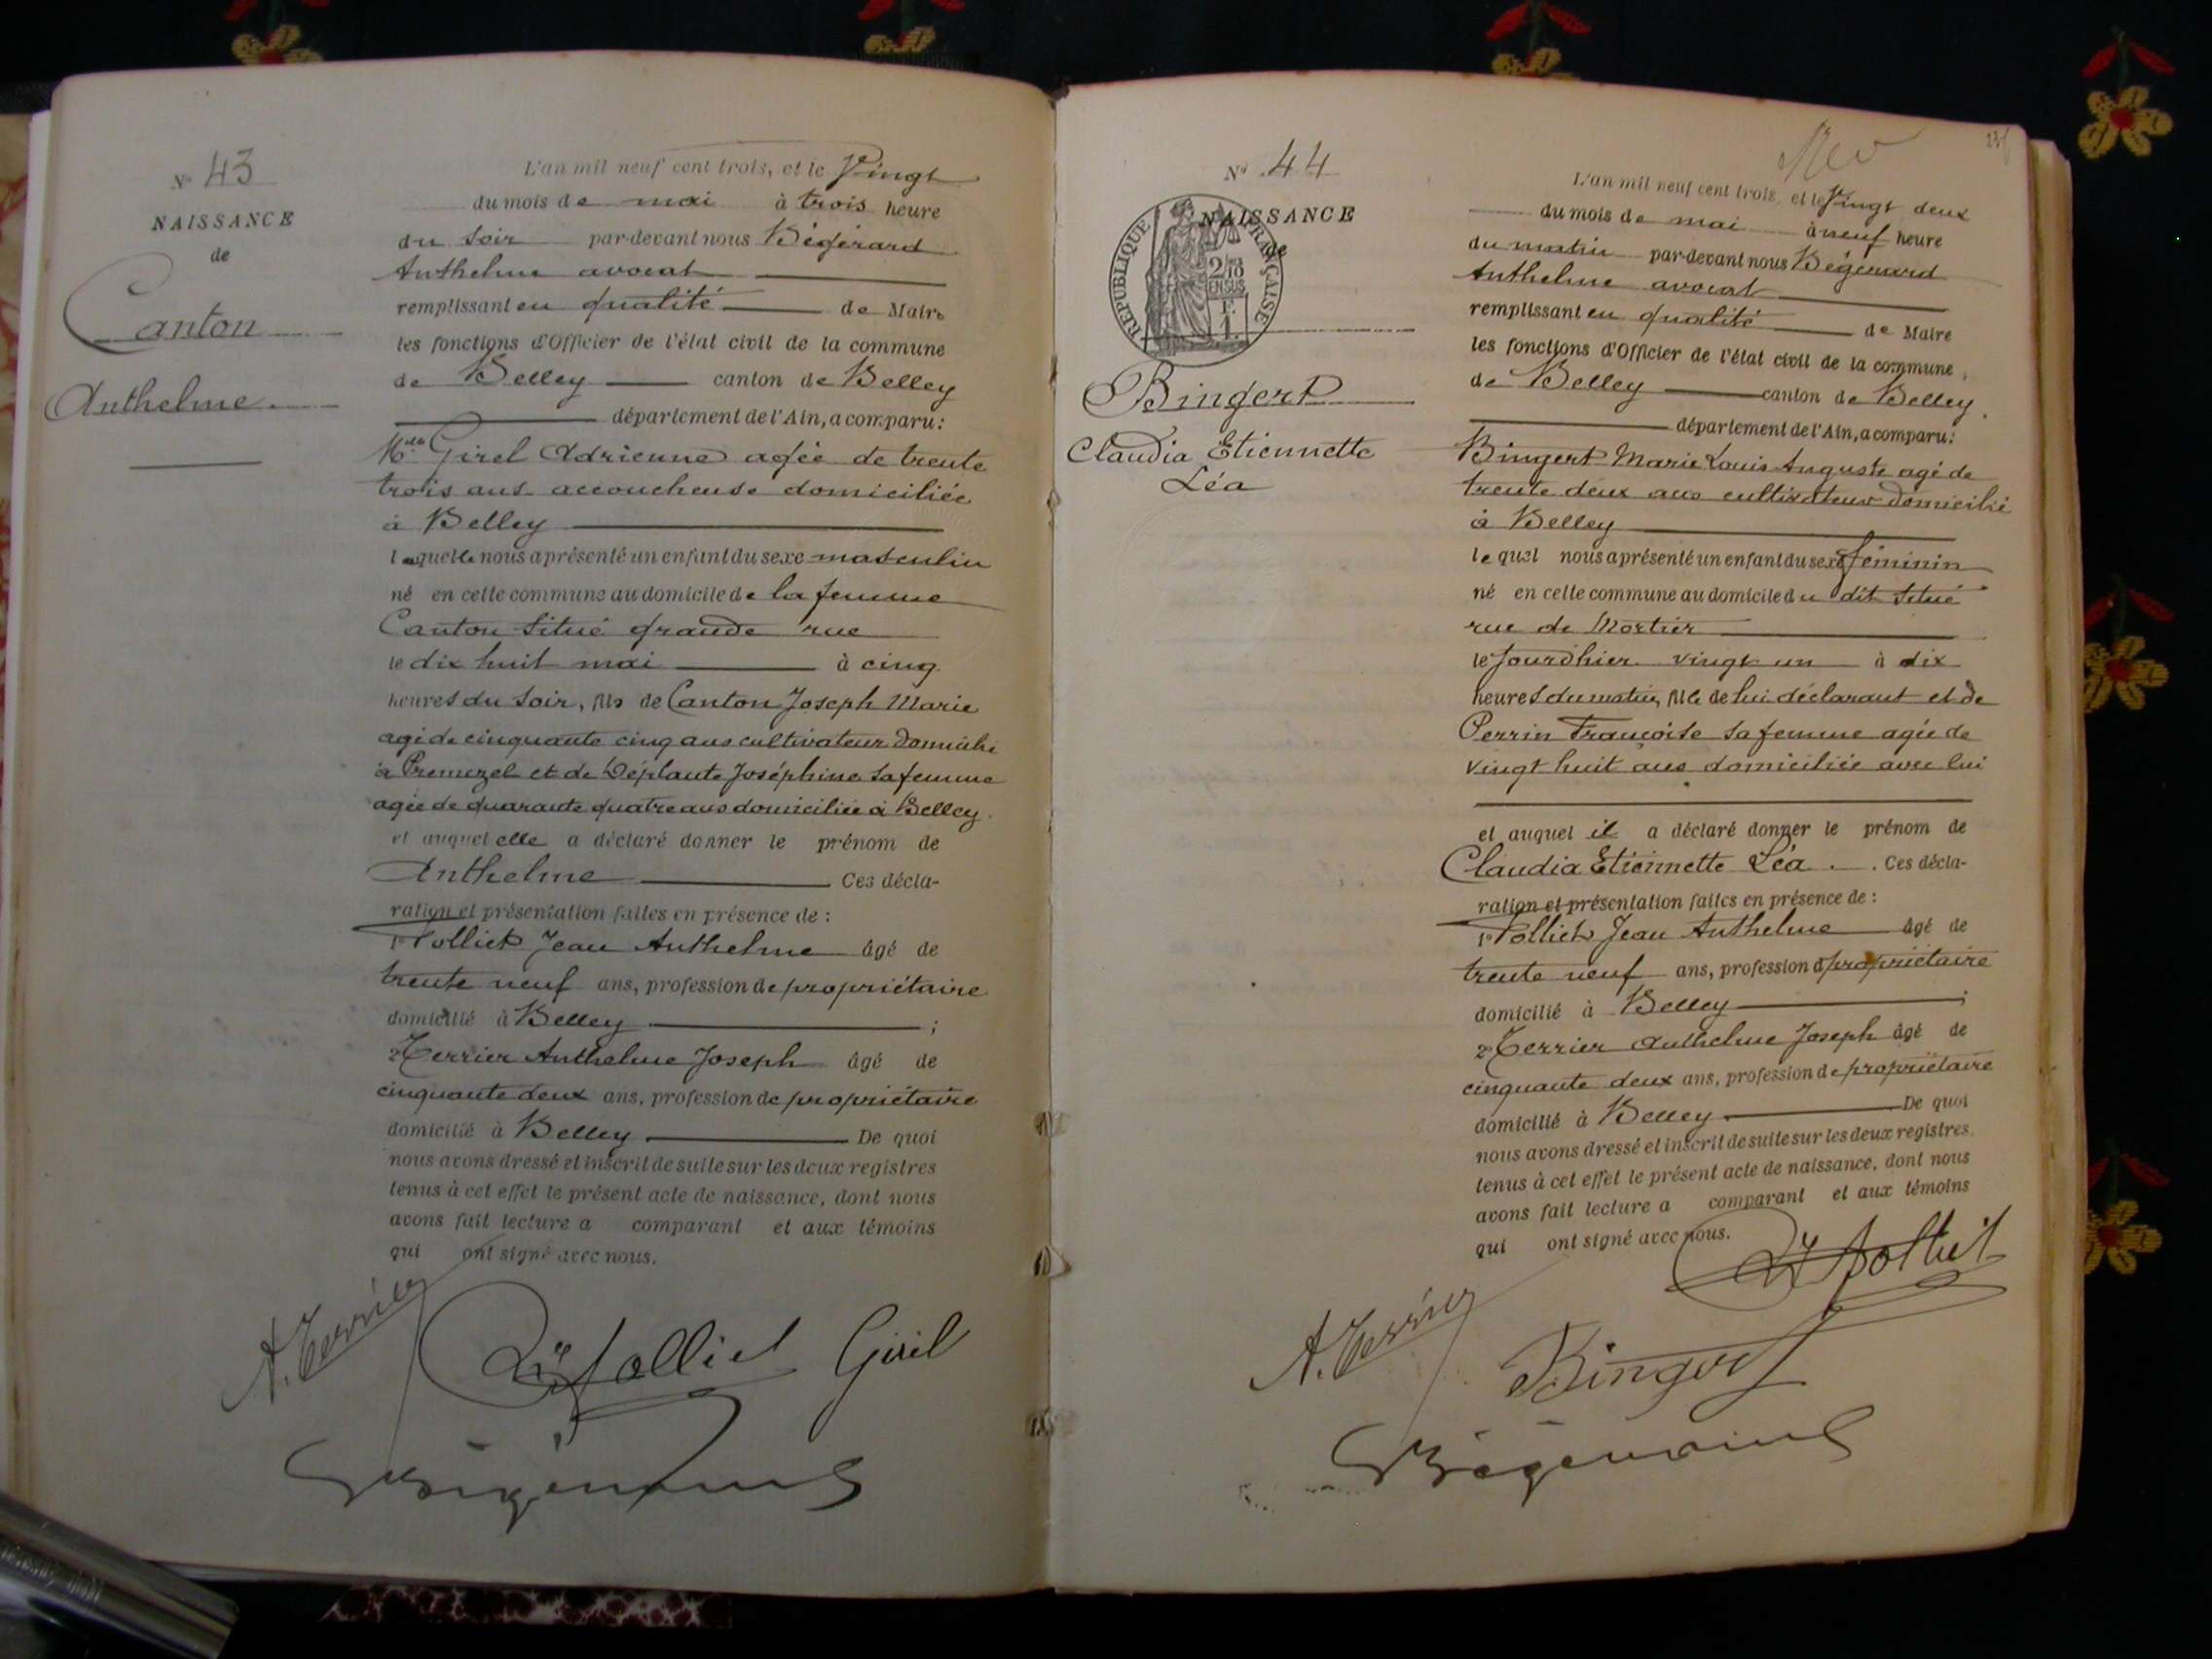 N° 43
NAISSANCE
de
Canton
Anthelme.
L'an mil neuf cent trois, et le Vingt
du mois de mai à trois heure
du soir par-devant nous Bégérard
Anthelme avocat
remplissant en qualité de Maire
les fonctions d'Officier de l'état civil de la commune
de Belley canton de Belley
département de l'Ain, a comparu:
Melle Girel Adrienne agée de trente
trois ans accoucheuse domiciliée
à Belley
laquelle nous a présenté un enfant du sexe masculin
né en cette commune au domicile de la femme
Canton situé grande rue
le dix huit mai à cinq
heures du soir, fils de Canton Joseph Marie
agé de cinquante cinq ans cultivateur domicilié
à Premezel et de Déplante Joséphine sa femme
agée de quarante quatre ans domiciliée à Belley.
et auquel elle a déclaré donner le prénom de
Anthelme Ces décla-
ration et présentation faites en présence de :
1° Jolliet Jean Anthelme âgé de
trente neuf ans, profession de propriétaire
domicilié à Belley ;
2° Terrier Anthelme Joseph âgé de
cinquante deux ans, profession de propriétaire
domicilié à Belley De quoi
nous avons dressé et inscrit de suite sur les deux registres
tenus à cet effet le présent acte de naissance, dont nous
avons fait lecture a comparant et aux témoins
qui ont signé avec nous.
A. Terrier
Jolliet Girel
Bégérard
N° 44
NAISSANCE
de
RÉPUBLIQUE FRANÇAISE
2/10
EN SUS
F.
1.
Bingert
Claudia Etiennette
Léa
L'an mil neuf cent trois, et le Vingt deux
du mois de mai à neuf heure
du matin par-devant nous Bégérard
Anthelme avocat
remplissant en qualité de Maire
les fonctions d'Officier de l'état civil de la commune
de Belley canton de Belley.
département de l'Ain, a comparu:
Bingert Marie Louis Auguste agé de
trente deux ans cultivateur domicilié
à Belley
lequel nous a présenté un enfant du sexe féminin
né en cette commune au domicile du dit situé
rue de Mortier
le jourd'hier vingt un à dix
heures du matin, fille de lui déclarant et de
Perrin Françoise sa femme agée de
vingt huit ans domiciliée avec lui
et auquel il a déclaré donner le prénom de
Claudia Etiennette Léa . Ces décla-
ration et présentation faites en présence de :
1° Jolliet Jean Anthelme âgé de
trente neuf ans, profession de propriétaire
domicilié à Belley ;
2° Terrier Anthelme Joseph âgé de
cinquante deux ans, profession de propriétaire
domicilié à Belley De quoi
nous avons dressé et inscrit de suite sur les deux registres
tenus à cet effet le présent acte de naissance, dont nous
avons fait lecture a comparant et aux témoins
qui ont signé avec nous.
Jolliet
A. Terrier
Bingert
Bégérard